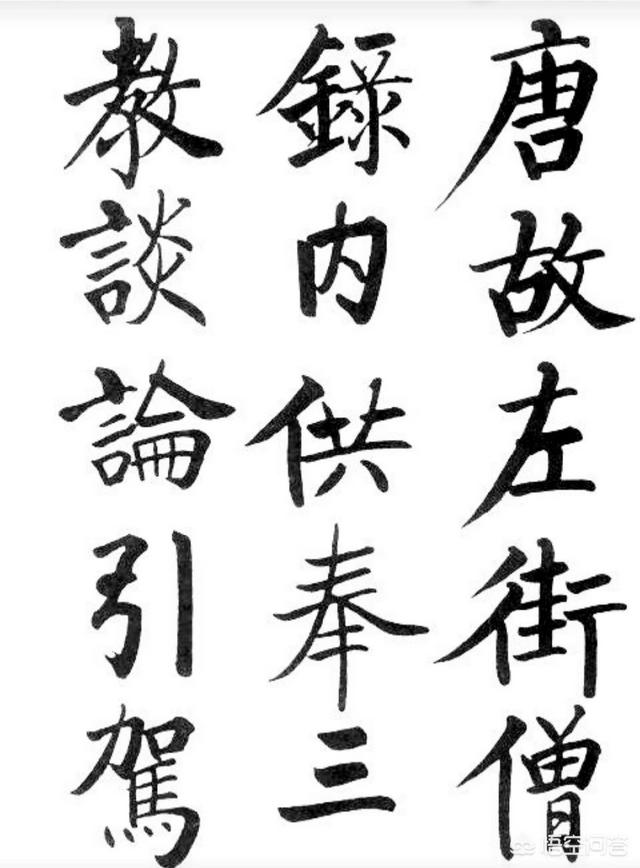 唐故左街僧
録内供奉三
教談論引駕
悟空问答